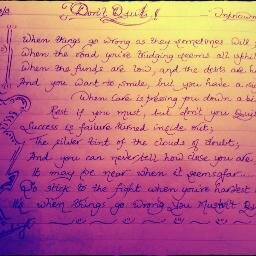 Don't Quit! - Unknown
When things go wrong as they sometimes will,
When the road you're trudging seems all uphi
When the funds are low, and the debts are hi
And you want to smile, but you have a
When care is pressing you down a bi
Rest if you must, but don't you Quit
Success is failure turned inside out;
The silver tint of the clouds of doubt;
And you can never tell how close you are
It may be near when it seems far...
So stick to the fight when you're hardest
It's when things go wrong You Mustn't Qu